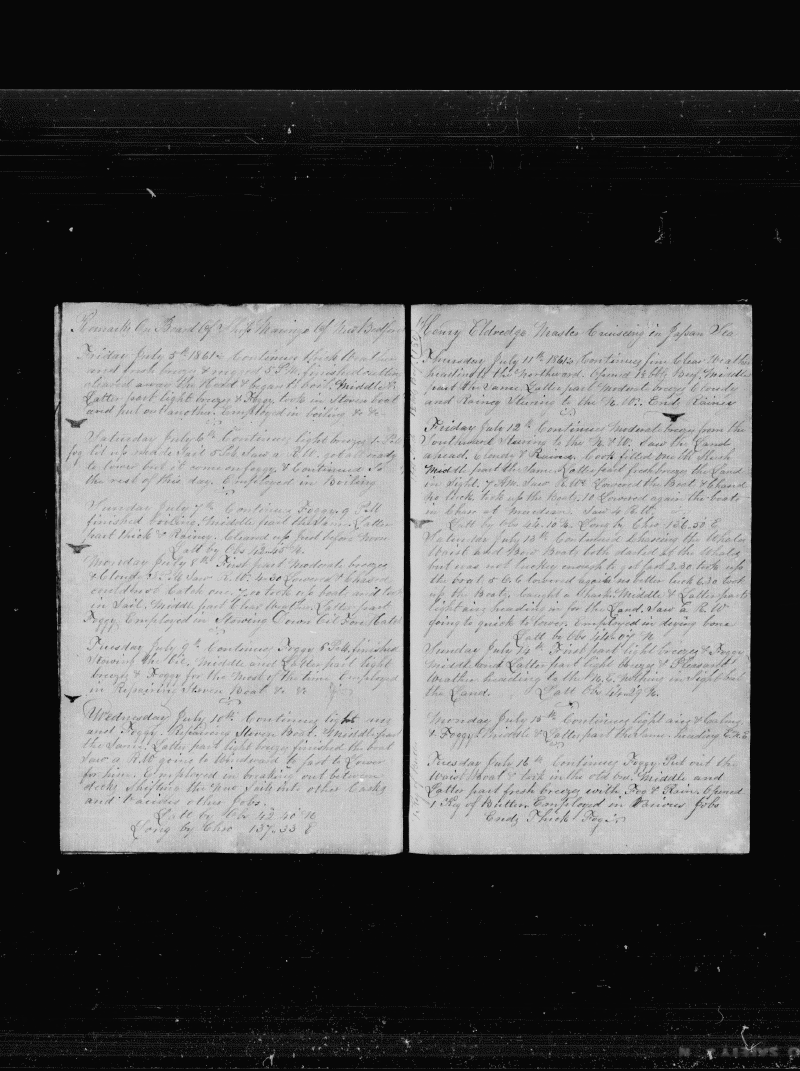 Remarks On Board Of Ship Marengo Of New Bedford
Friday July 5th 1861 Continues thick weather
and fresh breeze & rugged 5 P.M. finished cutting
cleared away the Head & began to boil. Middle &
Latter part light breeze & Foggy took in Stoven boat
and put out another Employed in boiling &c &c
Saturday July 6th Continues light breeze & 
fog lit up made Sail 5 P.M. Saw a R.W. got all ready
to lower but it come on foggy & Continued So
the rest of this day. Employed in Boiling
Sunday July 7th Continues Foggy 9 P.M
finished boiling. Middle part the Same. Latter
part thick & Rainy. Cleared up just before Noon
Latt by Obs 42.45 N.
Monday July 8th First part Moderate breeze
& Cloudy P.M. Saw R.W. 4.30 Lowered & Chased
could not Catch one. 7.00 took up boat and took
in Sail. Middle part Clear Weather. Latter part
Foggy. Employed in Stowing Down Oil Fore Hatch
Tuesday July 9th Continues Foggy 5 P.M. finished
Stowing the Oil. Middle and Latter part light
breeze & Foggy for the Most of the time. Employed
in Repairing Stoven Boat &c &c
Wednesday July 10th Continues light airs
and Foggy. Repairing Stoven Boat. Middle part
the Same. Latter part light breeze finished the boat
Saw a R.W going to Windward to fast to Lower
for him. Employed in breaking out between
decks Shifting the New Sails into other Casks
and Various other Jobs.
Latt by Obs 42.40 N
Long by Chro 137.33 E
Henry Eldredge Master Cruiseing in Japan Sea
Thursday July 11th 1861 Continues fine Clear Weather
heading to the Northward. Opened Bbl Beef. Middle
part the Same. Latter part Moderate breeze Cloudy
and Rainey Steering to the N.W. Ends Rainey
Friday July 12th Continues Moderate breeze from the
Southward Steering to the N.W. Saw the Land
ahead. Cloudy & Raining. Cook filled one Mk Slush
Middle part the Same. Latter part fresh breeze the Land
in Sight. 7 A.M. Saw R.Ws Lowered the Boats & Chased
no luck took up the Boats. 10 Lowered again the boats
in Chase at Meridian. Saw 4 R.Ws.
Latt by Obs 44.10 N. Long by Chro 137.30 E
Saturday July 13th Continues Chaseing the Whales
Waist and Bow Boats both darted at the Whales
but was not lucky enough to get fast 2.30 took up
the boats 5 O.C lowered again no better luck 6.30 took
up the Boats. Caught a Shark. Middle & Latter part
light airs heading in for the Land. Saw a R.W
going to quick to lower. Employed in drying bone
Latt by Obs 44.07 N
Sunday July 14th First part light breeze & Foggy
Middle and Latter part light breeze & Pleasant
Weather heading to the N.E. Nothing in Sight but
the Land. Latt Obs 44.29 N.
Monday July 15th Continues light airs & Calms
& Foggy. Middle & Latter part the Same. heading E.N.E
Tuesday July 16th Continues Foggy. Put out the
Waist boat & took in the old one. Middle and
Latter part fresh breeze with Fog & Rain. Opened
1 Keg of Butter. Employed in Various Jobs
Ends Thick Fog